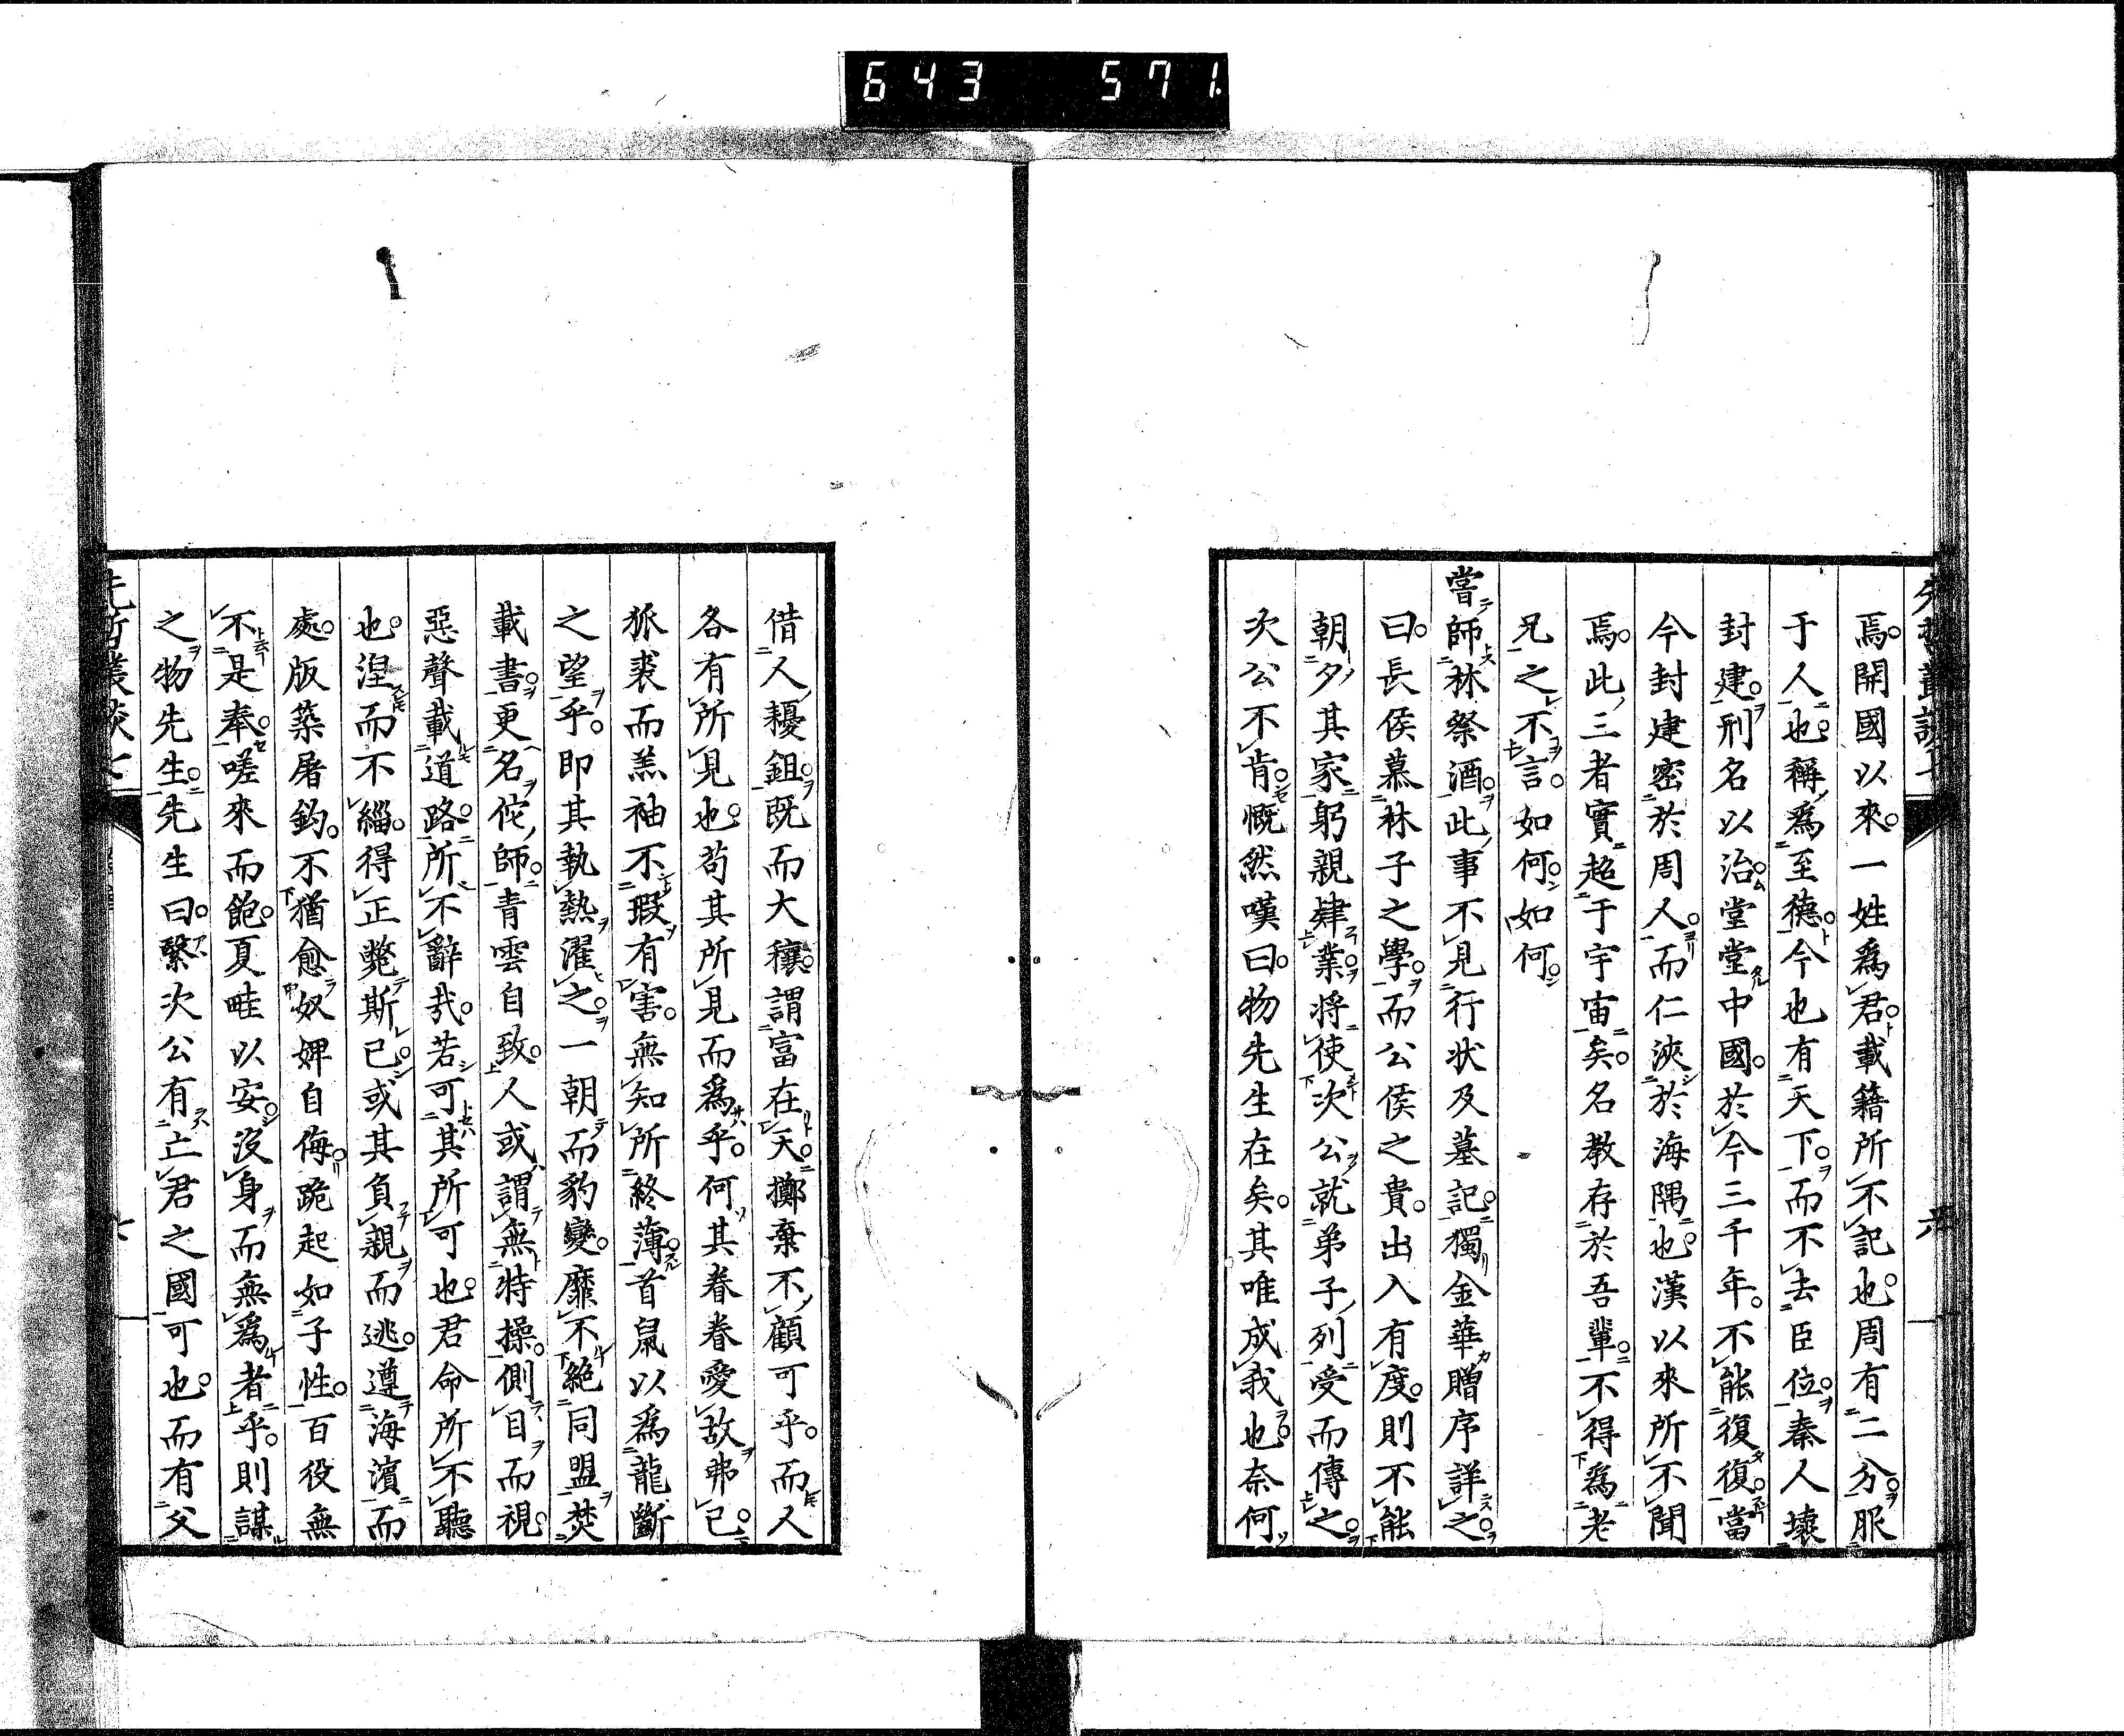 643 571.
焉。開國以來。一姓爲君。載籍所不記也。周有二分。服
于人也。稱爲至德。今也有天下。而不去臣位。秦人壞
封建。刑名以治。堂堂中國。於今三千年。不能復復。當
今封建密於周人。而仁浹於海隅也。漢以來所不聞
焉。此三者實超于宇宙矣。名教存於吾輩。不得爲老
兄之不言。如何。如何。
當師林祭酒。此事不見行狀及墓記。獨金華贈序詳之。
曰。長侯慕林子之學。而公侯之貴。出入有度。則不能
朝夕其家。躬親肄業。將使次公就弟子列受而傳之。
次公不肯。慨然嘆曰。物先生在矣。其唯成我也。奈何
借人耰鉏。既而大穰。謂富在天。擲棄不顧可乎。而人
各有所見也。苟其所見而爲乎。何其眷眷愛故弗已。
狐裘而羔袖不瑕有害。無知所終薄。首鼠以爲龍斷
之望乎。即其執熱濯之。一朝而豹變。靡不絶同盟焚
載書。更名佗師。青雲自致。人或謂無特操。側目而視。
惡聲載道路。所不辭哉。若可其所可也。君命所不聽
也。涅而不緇。得正斃斯已。或其負親而逃。遵海濱而
處。版築屠釣。不猶愈奴婢自侮。跪起如子性。百役無
不是奉。嗟來而飽。夏畦以安。沒身而無爲者乎。則謀
之物先生。先生曰。繄次公有亡君之國可也。而有父